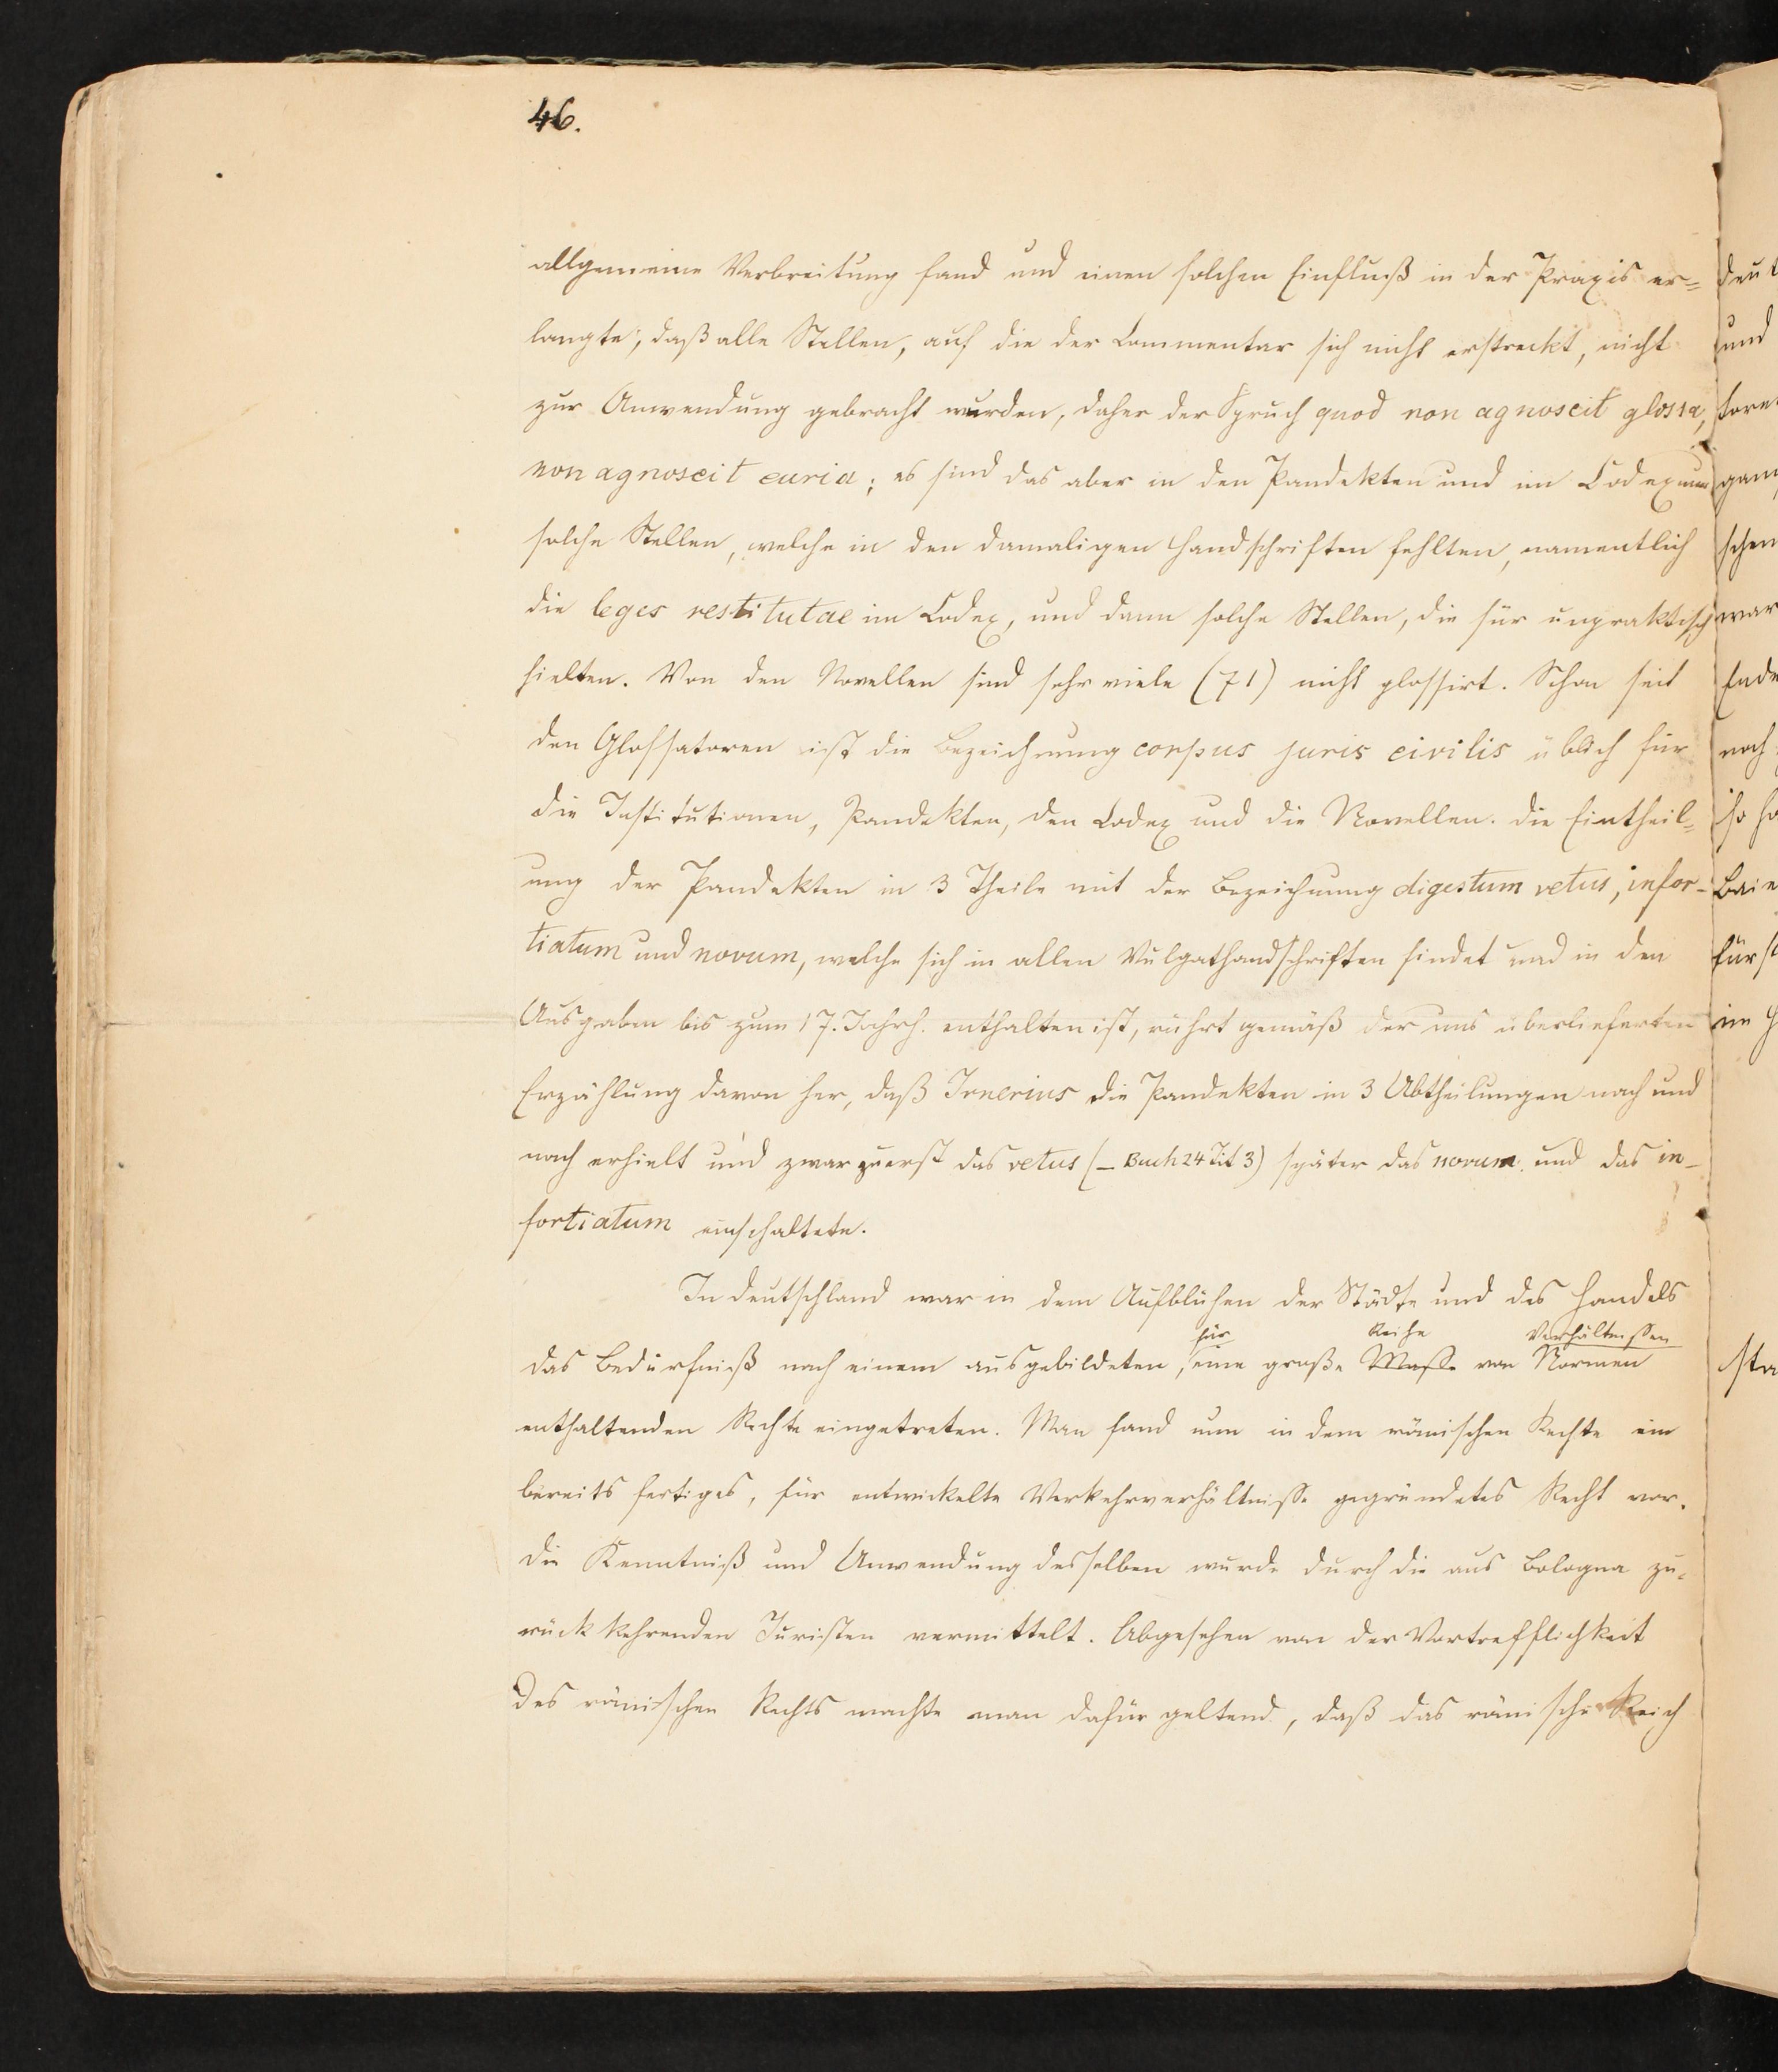 46.
allgemeine Verbreitung fand und einen solchen Einfluß in der Praxis er=
langte, daß alle Stellen, auf die der Commentar sich nicht erstreckt, nicht
zur Anwendung gebracht wurden, daher der Spruch quod non agnoscit glossa,
non agnoscit curia; es sind das aber in den Pandekten und im Codex nur
solche Stellen, welche in den damaligen Handschriften fehlten, namentlich
die leges restitutae im Codex, und dann solche Stellen, die für unpraktisch
hielten. Von den Novellen sind sehr viele (71) nicht glossirt. Schon seit
den Glossatoren ist die Bezeichnung corpus juris civilis üblich für
die Institutionen, Pandekten, den Codex und die Novellen. Die Eintheil=
ung der Pandekten in 3 Theile mit der Bezeichnung digestum vetus, infor-
tiatum und novum, welche sich in allen Vulgathandschriften findet und in den
Ausgaben bis zum 17. Jahrh. enthalten ist, rührt gemäß der uns überlieferten
Erzählung davon her, daß Irnerius die Pandekten in 3 Abtheilungen nach und
nach erhielt und zwar zuerst das vetus (– Buch 24 Tit 3) später das novum und das in-
fortiatum einschaltete.
In Deutschland war in dem Aufblühen der Städte und des Handels
für Reihe Verhältnissen
das Bedürfniß nach einem ausgebildeten, eine große Masse von Normen
enthaltenden Rechte eingetreten. Man fand nun in dem römischen Rechte ein
bereits fertiges, für entwickelte Verkehrverhältnisse gegründetes Recht vor.
Die Kenntniß und Anwendung desselben wurde durch die aus Bologna zu=
rückkehrenden Juristen vermittelt. Abgesehen von der Vortrefflichkeit
des römischen Rechts machte man dafür geltend, daß das römische Reich